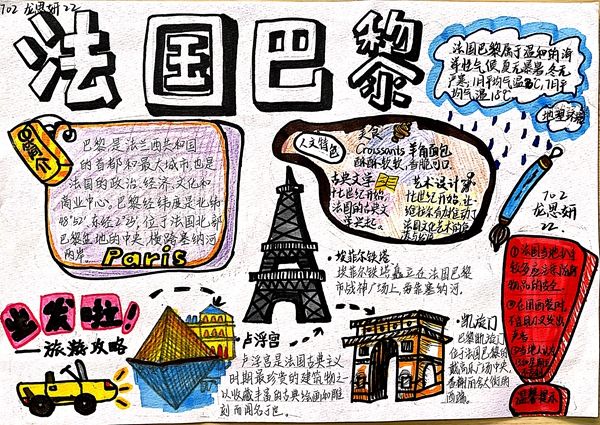 702 龙思妍 22
法国巴黎
简介
巴黎是法兰西共和国
的首都和最大城市，也是
法国的政治、经济、文化和
商业中心，巴黎经纬度是北纬
48°52′，东经2°25′，位于法国北部
巴黎盆地的中央，横跨塞纳河
两岸。
Paris
人文特色
美食
Croissants 羊角面包
古典文学
法国的古典文
艺术设计
法国巴黎属于温和的海
洋性气候，夏无暴暑，冬无
严寒，1月平均气温3℃，7月平
均气温18℃
地理环境
702
龙思妍
22
·埃菲尔铁塔
埃菲尔铁塔矗立在法国巴黎
市战神广场上，旁靠塞纳河。
出发啦！
——旅游攻略
·卢浮宫
卢浮宫是法国古典主义
时期最珍贵的建筑物之一
以收藏丰富的古典绘画和雕
刻而闻名于世。
·凯旋门
巴黎凯旋门
位于法国巴黎的
戴高乐广场中央，
香榭丽舍大街的
西端。
温馨提示